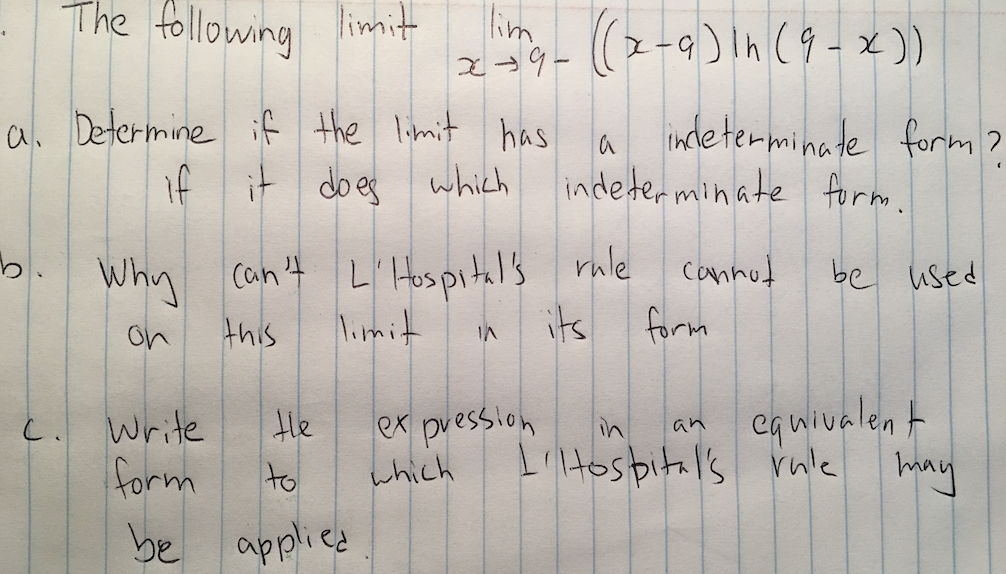 . The following limit lim x→9- ((x-9) ln (9-x))
a. Determine if the limit has a indeterminate form?
If it does which indeterminate form.
b. Why can't L'Hospital's rule cannot be used
on this limit in its form
c. Write the expression in an equivalent
form to which L'Hospital's rule may
be applied.